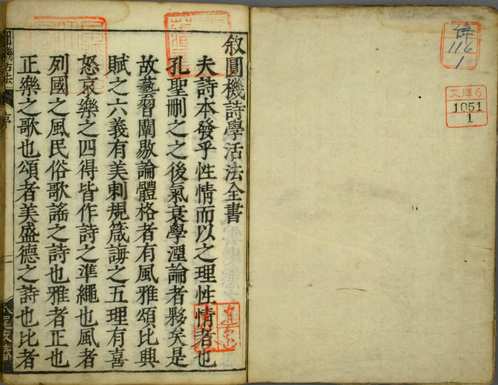 敘圓機詩學活法全書
夫詩本發乎性情而以之理性情者也
孔聖刪之之後氣衰學湮論者夥矣是
故藝習閫敭論體格者有風雅頌比興
賦之六義有美刺規箴誨之五理有喜
怒哀樂之四得皆作詩之準繩也風者
列國之風民俗歌謠之詩也雅者正也
正樂之歌也頌者美盛德之詩也比者
116
1
1051
1